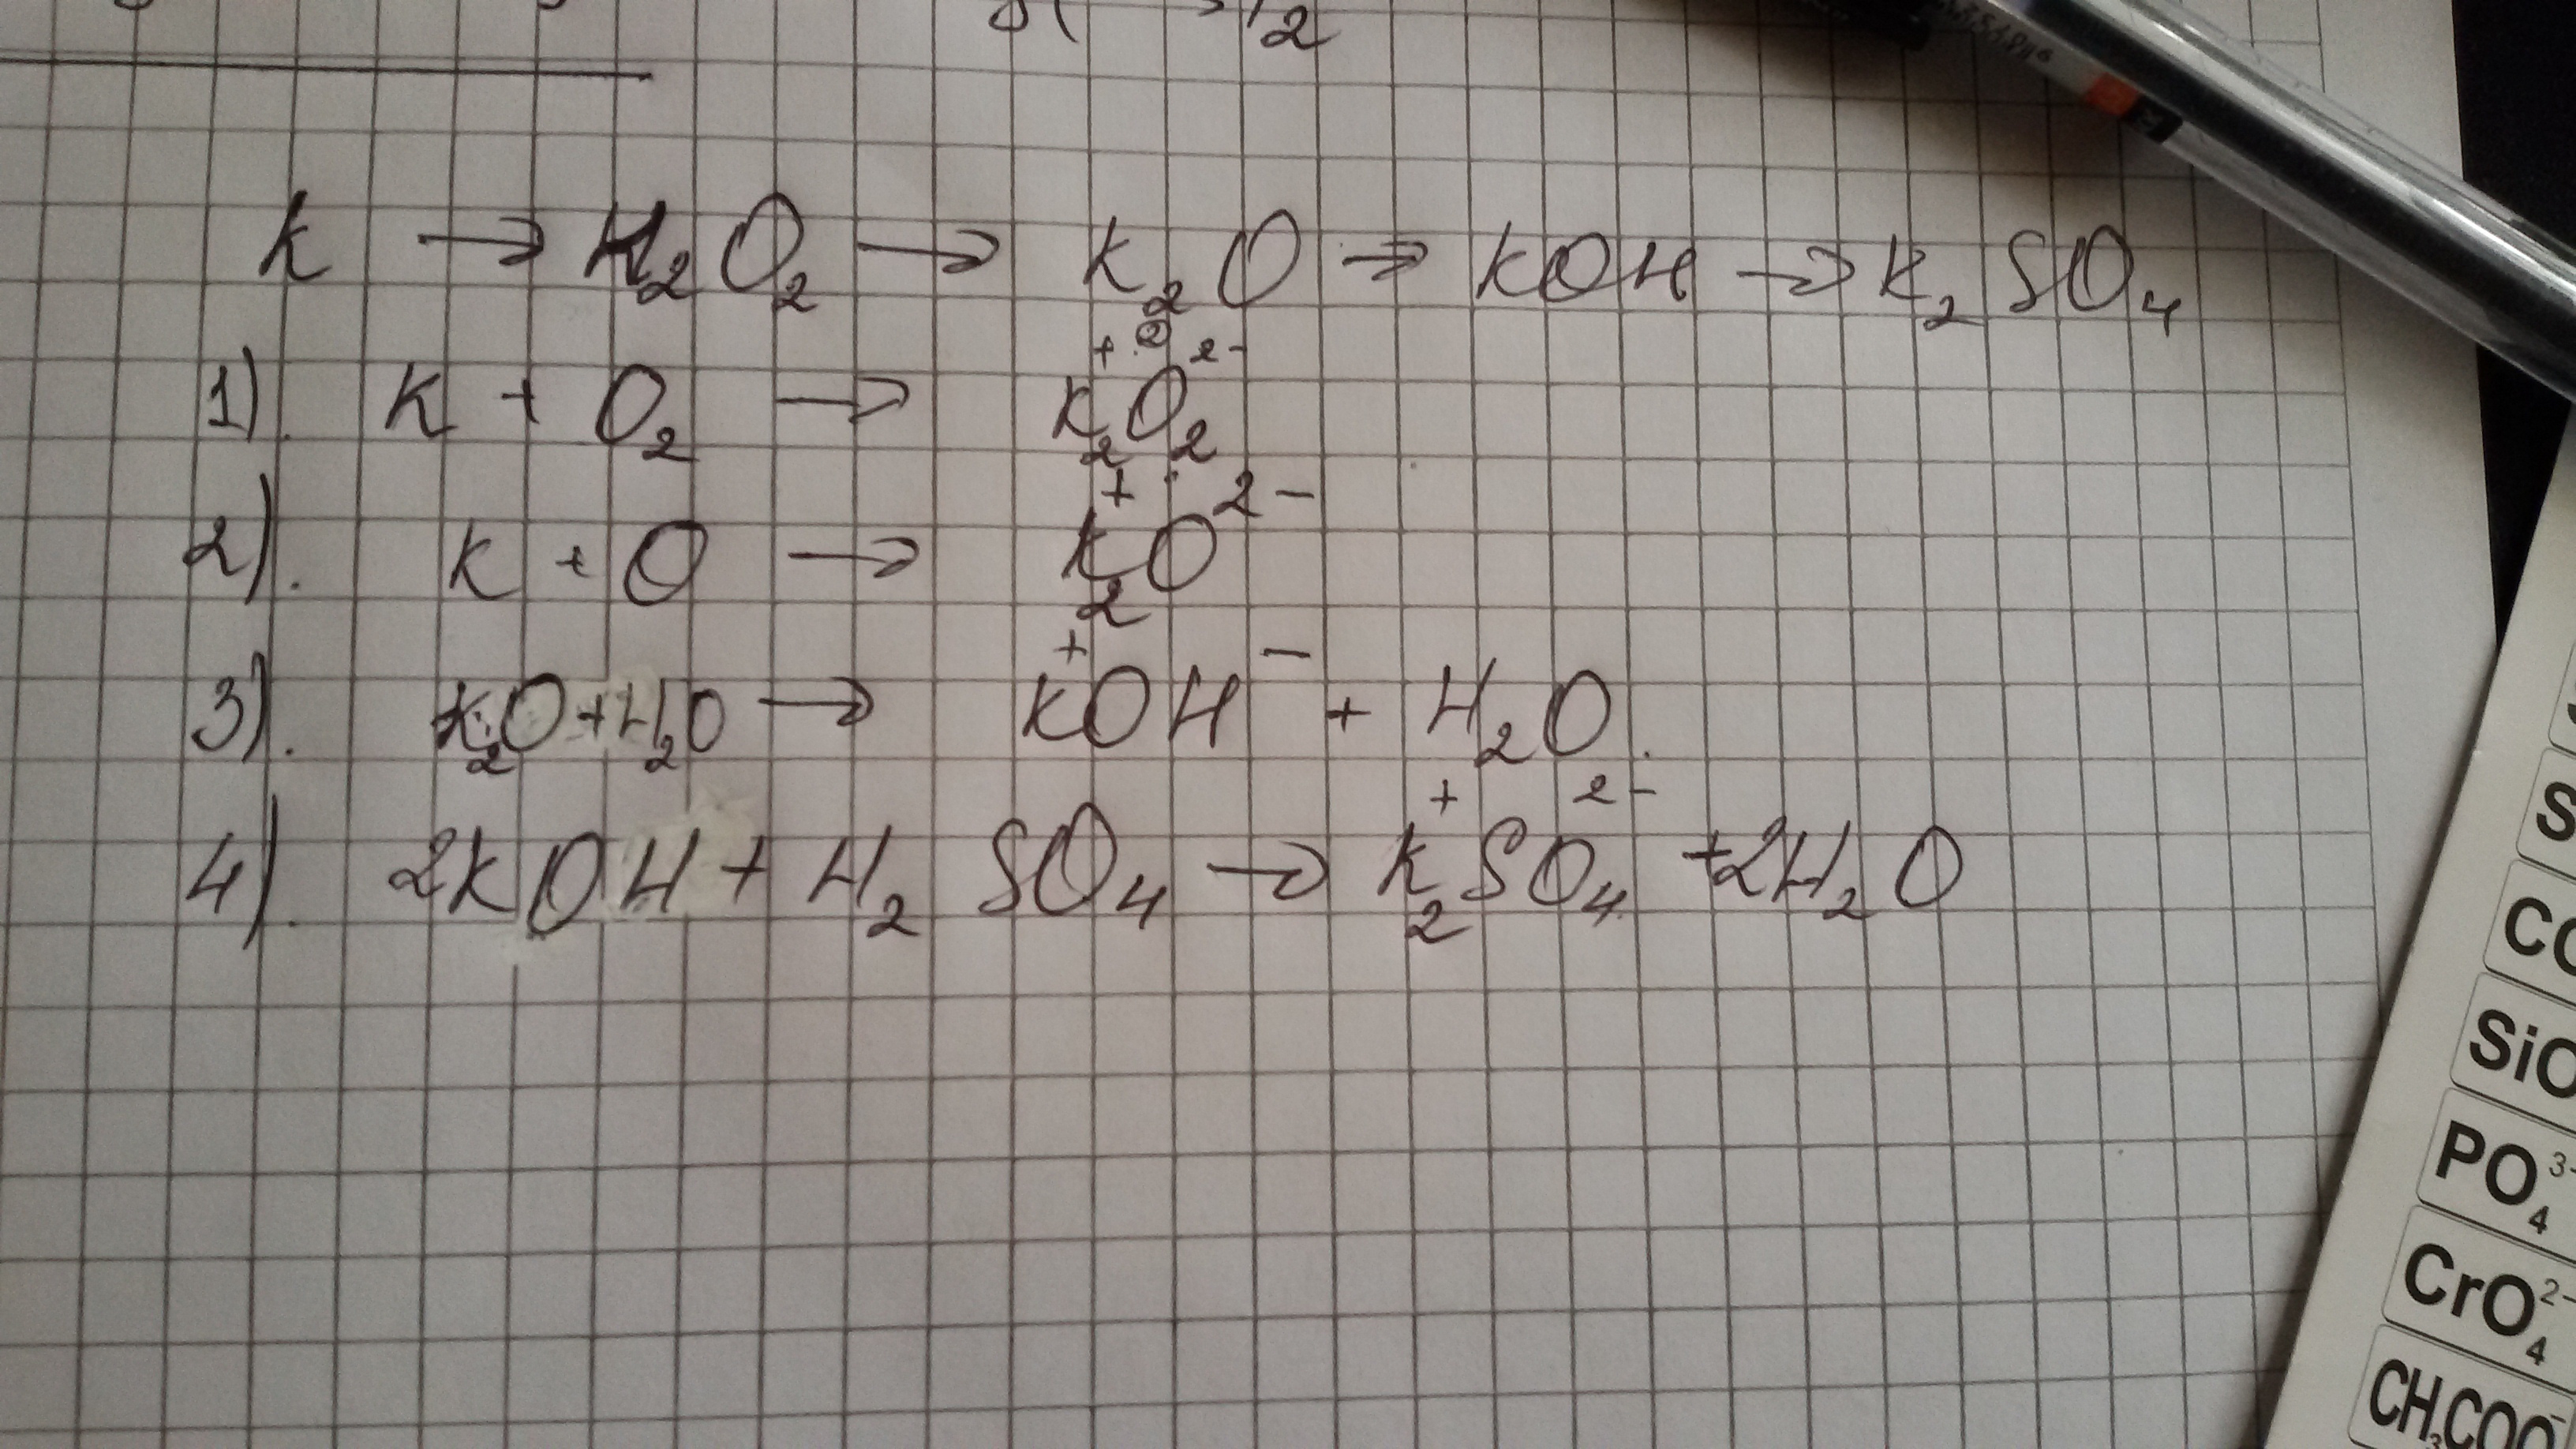 K → K₂O₂ → K₂O → KOH → K₂SO₄
1). K + O₂ → K₂⁺O₂²⁻
2). K + O → K₂⁺O²⁻
3). K₂O + H₂O → K⁺OH⁻ + H₂O.
4). 2KOH + H₂SO₄ → K₂⁺SO₄²⁻ + 2H₂O
SiO
PO₄³⁻
CrO₄²⁻
CH₃COO⁻